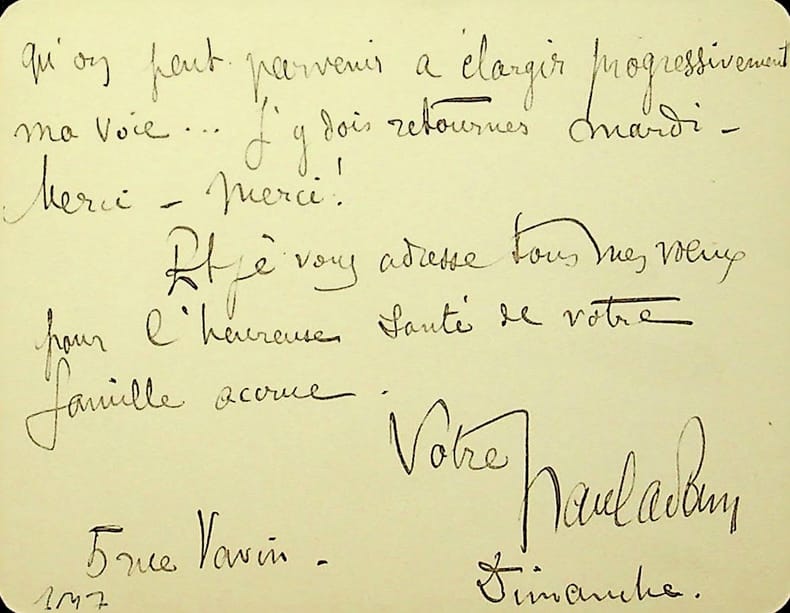 qu'on peut parvenir à élargir progressivement
ma voie... J'y dois retourner mardi -
Merci - merci!
Et je vous adresse tous mes vœux
pour l'heureuse santé de votre
famille accrue.
Votre Paul Adam
5 rue Vavin -
Dimanche.